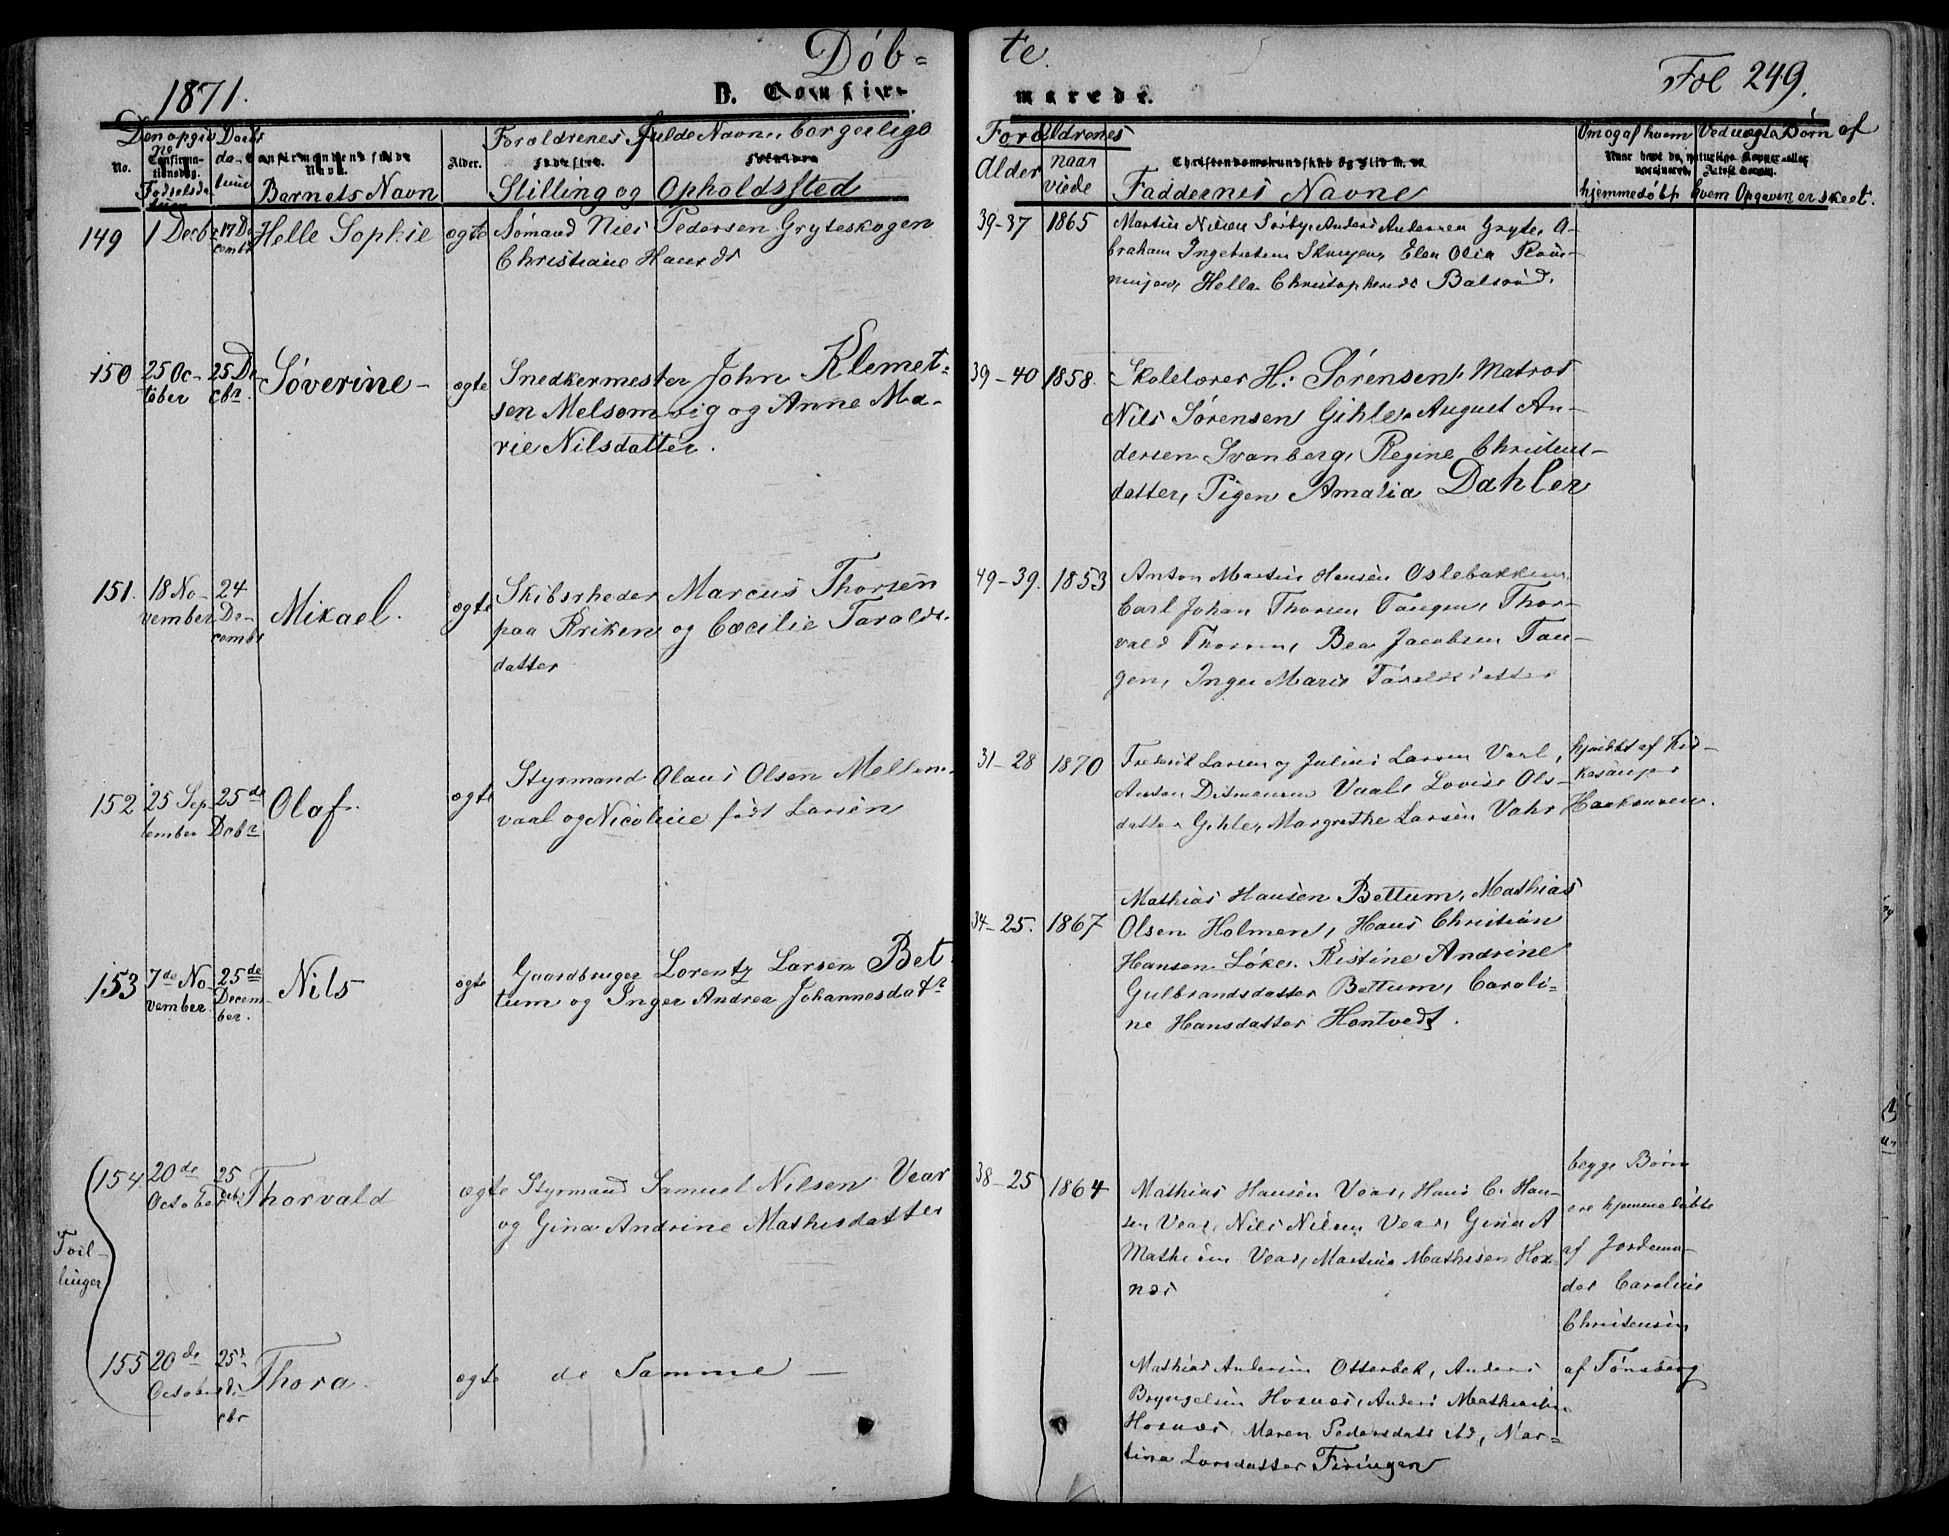 Døb= te.
1871. D. Confir- marede. Fol 249.
Den opgivne Fødselsda Daabsdatum
No. Confirmationsdag. Confirmandens fulde Navn. Alder.
Barnets Navn
Forældrenes fulde Navne, borgerlige
Stilling og Opholdssted
Forældrenes
Alder naar viede
Christendomskundskab og Flid m. v.
Faddernes Navne
Om og af hvem hjemmedøbt
Ved uægte Børn af hvem Opgaven er skeet.
149 1 Decbr 17 December Helle Sophie ægte Sømand Nils Pedersen Gryteskogen
Christiane Hansdr
39-37 1865 Martin Nilsen Sørby, Anders Andersen Gryte, A-
braham Ingebretsen Skauen, Elen Olia Røn-
ningen, Helle Christophersdr Balsrød.
150 25 October 25 Decbr. Søverine – ægte Snedkermester John Klemet=
sen Melsomvig og Anne Ma-
rie Nilsdatter.
39-40 1858. Skolelærer H: Sørensen, Matros
Nils Sørensen Gihle, August An-
dersen Svanberg, Regine Christens-
datter, Pigen Amalia Dahler
151. 18 November 24 December Mikael. ægte Skibsrheder Marcus Thorsen
paa Kriken og Cæcilie Taralds-
datter
49-39. 1853 Anton Martin Hansen Oslebakken
Carl Johan Thorsen Tangen, Thor-
vald Thorsen, Bea Jacobsen Tan-
gen, Inger Marie Taralsdatter
152 25 September 25de Decbr Olaf. ægte Styrmand Olaus Olsen Mellem-
vaal og Nicoline født Larsen
31-28 1870 Frederik Larsen og Julius Larsen Vaal,
Anton Ditmansen Vaale Lovise Ols-
datter Gihle, Margrethe Larsen Vahr
hjmdbt af
Haakonsen.
153 7de November 25de December. Nils ægte Gaardbruger Lorentz Larsen Bet
tum og Inger Andrea Johannesdatr
34-25. 1867 Mathias Hansen Bettum, Mathias
Olsen Holmen, Hans Christian
Hansen Løke, Kistine Andrine
Gulbrandsdatter Bettum, Caroli-
ne Hansdatter Hontvedt.
Tvillinger
154 20de October 25 Debr Thorvald ægte Styrmand Samuel Nilsen Vear
og Gina Andrine Mathisdatter
38-25 1864 Mathias Hansen Vear, Hans C. Han-
sen Vear, Nils Nilsen Vear, Gina A
Mathisen Vear, Martine Mathisen Hox-
næs
begge Børn
ere hjemmedøbte
af Jordemo-
der Caroline
Christensen
af Tønsberg
155 20de October 25 decbr Thora. ægte de Samme –
Mathias Andersen Otterbek, Anders
Bryngelsen Hoxnæs, Anders Mathiasen
Hoxnæs, Maren Pedersdatr , Mar=
tina Larsdatter Firingen